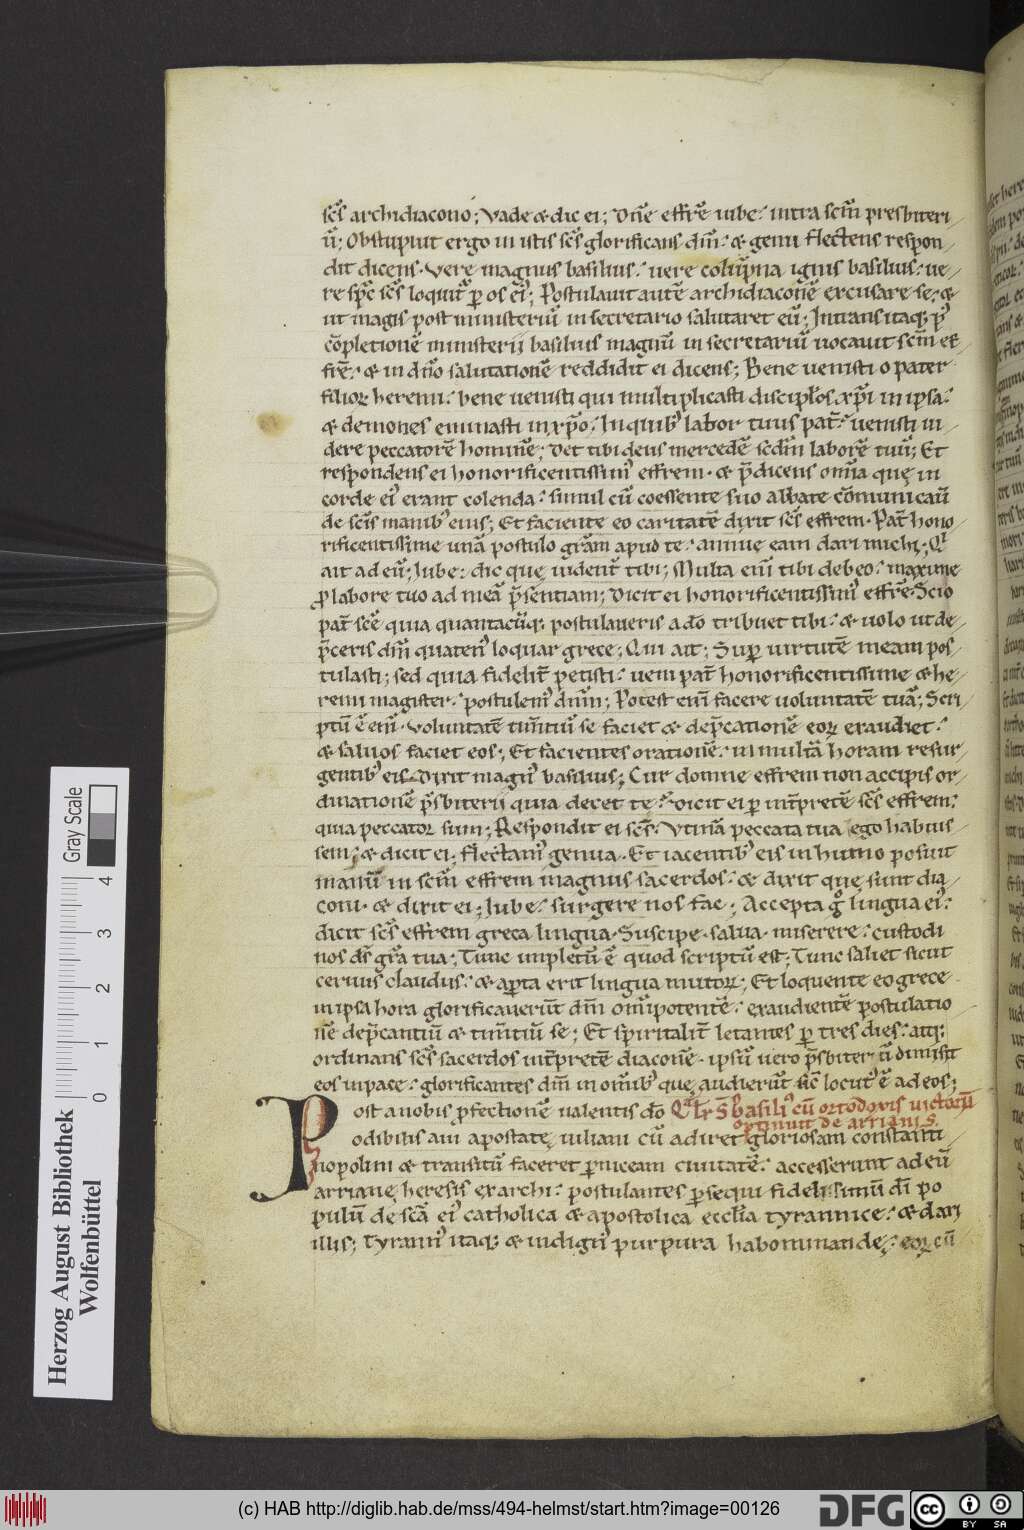 sc̄s archidiacono; Vade & dic ei; Dn̄e effrē iube: intra sc̄m presbiteri
ū; Obstupuit ergo in istis sc̄s glorificans dm̄: & genu flectens respon
dit dicens. Vere magnus basilius: uere colūpna ignis basilius: ue
re sp̄c sc̄s loquit̄ ꝑ os ei᷒; Postulauit autē archidiaconē excusare se: &
ut magis post ministeriū in secretario salutaret eū; Intrans itaq; p᷒
cōpletionē ministerii basilius magnū in secretariū uocauit sc̄m ef
frē: & in dn̄o salutationē reddidit ei dicens; Bene uenisti o pater
filioꝝ heremi: bene uenisti qui multiplicasti discipl̄os xp̄i in ipsa:
& demones eminasti in xp̄o: In quib᷒ labor tuus pat̄: uenisti ui
dere peccatorē hominē; Det tibi deus mercedē scd̄m laborē tuū; Et
respondens ei honorificentissim᷒ effrem. & p̄dicens om̄ia quę in
corde ei᷒ erant colenda: simul cū coessente suo abbate cōmunicaū
de sc̄is manib᷒ eius; Et faciente eo caritatē dixit sc̄s effrem. Pat̄ hono
rificentissime unā postulo gr̄am apud te: annue eam dari michi; Qⁱ
ait ad eū; Iube: dic quę uident̄ tibi; Multa eni᷒ tibi debeo: maxime
ꝓ labore tuo ad meā p̄sentiam; Dicit ei honorificentissim᷒ effrē: Scio
pat̄ sc̄e quia quantacūq; postulaueris a dō tribuet tibi: & uolo ut de
p̄ceris dm̄ quaten᷒ loquar grece; Qui ait; Sup̄ uirtutē meam pos
tulasti; sed quia fidelit̄ petisti: uem pat̄ honorificentissime & he
remi magister: postulem᷒ dn̄m; Potest eni᷒ facere uoluntatē tuā; Scri
ptū ē eni᷒. uoluntatē tim̄tiū se faciet & dep̄cationē eoꝝ exaudiet:
& saluos faciet eos; Et facientes orationē: in multā horam resur
gentib᷒ eis. Dixit magn᷒ basilius; Cur domne effrem non accipis or
dinationē p̄sbiterii quia decet te: Dicit ei ꝑ int̄pretē sc̄s effrem:
quia peccator sum; Respondit ei sc̄s. Vtinā peccata tua ego habuis
sem; & dicit ei; Flectam᷒ genua. Et iacentib᷒ eis in humo posuit
manū in sc̄m effrem magnus sacerdos: & dixit quę sunt dia
coni. & dixit ei; Iube: surgere nos fac; Accepta gͦ lingua ei᷒:
dicit sc̄s effrem greca lingua. Suscipe. salua. miserere: custodi
nos ds̄ gr̄a tua; Tunc impletū ē quod scriptū est; Tunc saliet sicut
ceruus claudus: & aꝑta erit lingua mutoꝝ; Et loquente eo grece
in ipsa hora glorificauerūt dm̄ om̄ipotentē: exaudientē postulatio
nē dep̄cantiū & tim̄tiū se; Et sp̄iritalit̄ letantes ꝑ tres dies: atq;
ordinans sc̄s sacerdos int̄pretē diaconē. ipsū uero p̄sbiterū dimisit
eos in pace: glorificantes dm̄ in om̄ib᷒ quę audierūt sic̄ locut᷒ ē ad eos;
Post a uobis ꝓfectionē ualentis dō Qᵃlr̄ S̄ basili᷒ cū ortodoxis uictoriū
optinuit de arrianis.
odibilis aui apostatę iuliani cū adiret gloriosam constanti
nopolim & transitū faceret ꝑniceam ciuitatē: accesserunt ad eū
arrianę heresis exarchi: postulantes ꝑsequi fidelissimū dī po
pulū de sc̄a ei᷒ catholica & apostolica eccl̄ia tyrannice: & dari
illis; Tyrann᷒ itaq; & indign᷒ purpura habominandę: eoꝝ cū
Herzog August Bibliothek
Wolfenbüttel
0 1 2 3 4
Gray Scale
(c) HAB http://diglib.hab.de/mss/494-helmst/start.htm?image=00126
DFG
cc BY SA